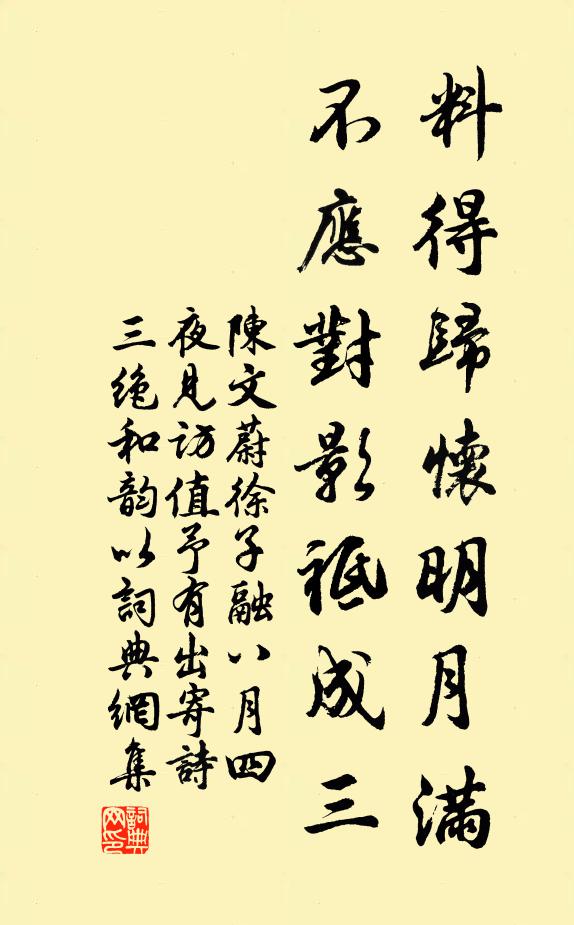 料得歸懷明月滿
不應對影祗成三
陳文蔚徐子融八月四
夜見訪值予有出寄詩
三绝和韵以詞典網集
詞典網印